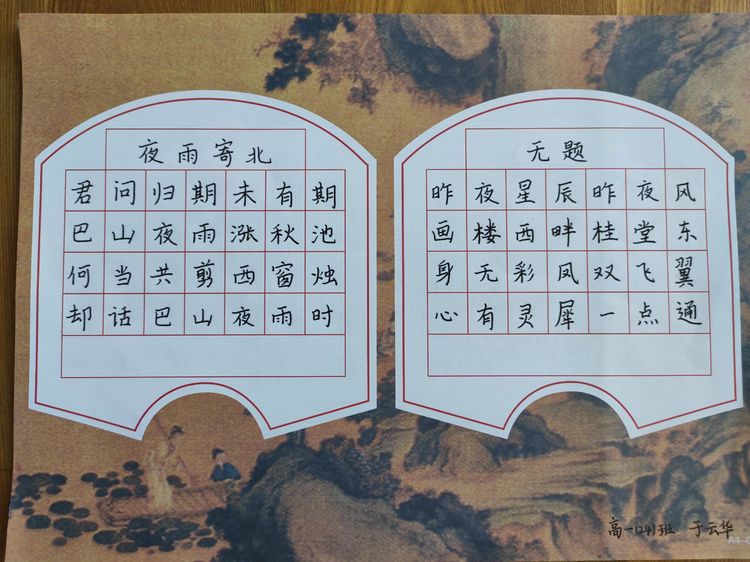 夜雨寄北
君问归期未有期
巴山夜雨涨秋池
何当共剪西窗烛
却话巴山夜雨时
无题
昨夜星辰昨夜风
画楼西畔桂堂东
身无彩凤双飞翼
心有灵犀一点通
高一(24)班 于云华